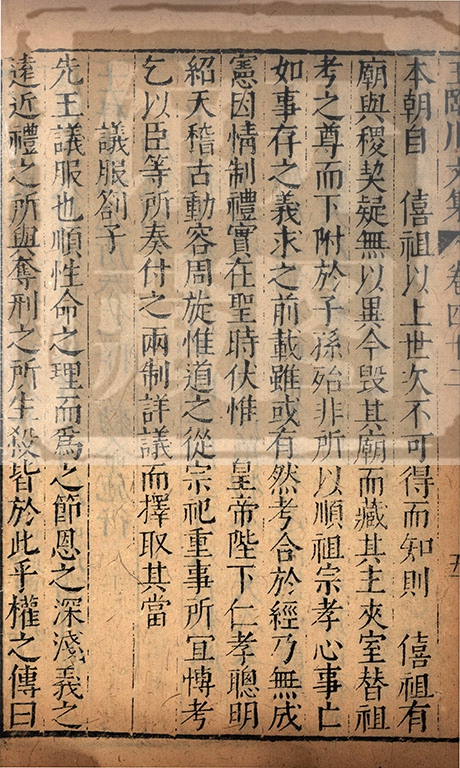 王臨川文集 卷四十二 五
本朝自 僖祖以上世次不可得而知則 僖祖有
廟與稷契疑無以異今毀其廟而藏其主夾室替祖
考之尊而下附於子孫殆非所以順祖宗孝心事亡
如事存之義求之前載雖或有然考合於經乃無成
憲因情制禮實在聖時伏惟 皇帝陛下仁孝聰明
紹天稽古動容周旋惟道之從宗祀重事所宜博考
乞以臣等所奏付之兩制詳議而擇取其當
議服劄子
先王議服也順性命之理而爲之節恩之深淺義之
遠近禮之所與奪刑之所生殺皆於此乎權之傳曰